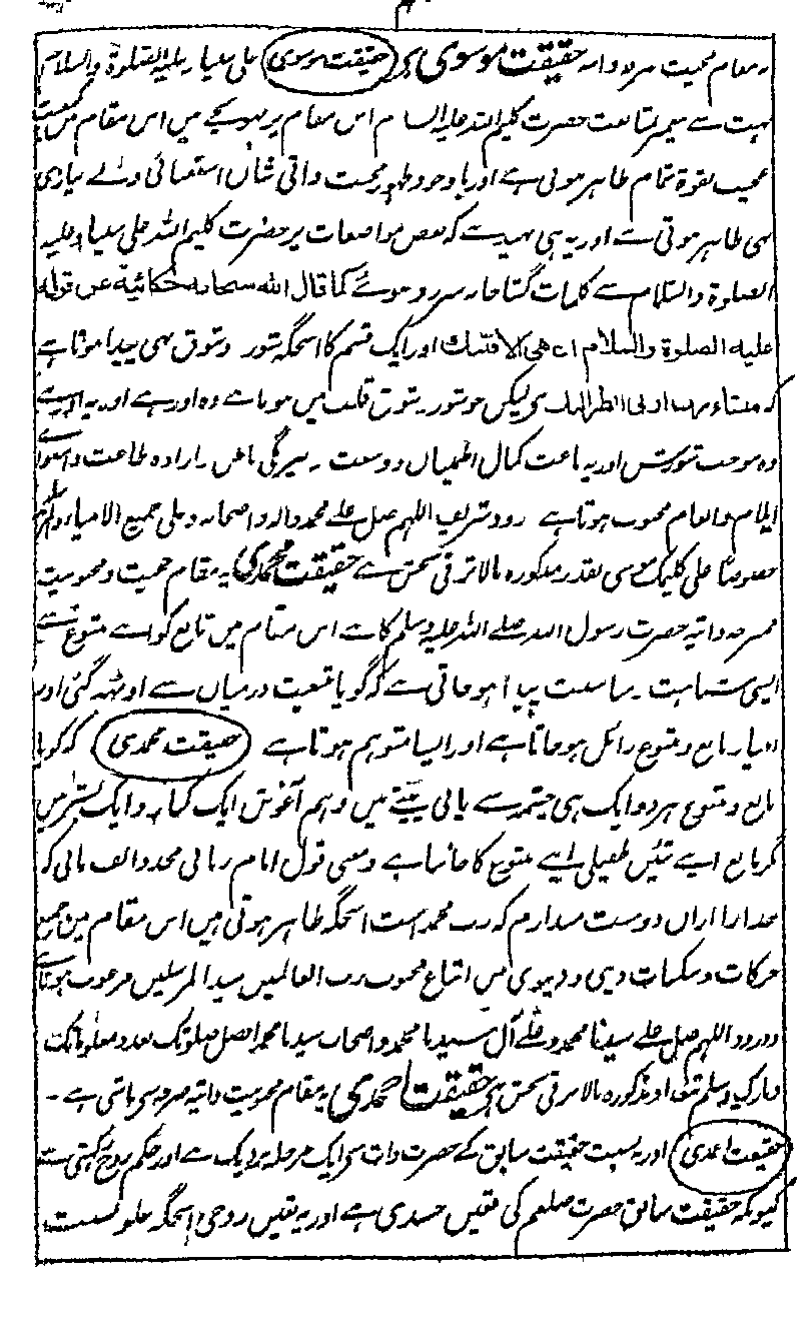 مقام محبیت صرفہ ذاتیہ حقیقت موسوی ہی حقیقت موسوی علی نبینا و علیہ الصلوۃ والسلام
بہت سے پیغمبر بمتابعت حضرت کلیم اللہ علیہ السلام اس مقام پر پہونچے ہیں اس مقام میں کیفیت
عجیب بقوۃ تمام ظاہر ہوتی ہے اور باوجود ظہور محبت ذاتی شان استغنائی و بے نیازی
بھی ظاہر ہوتی ہے اور یہ ہی بھید ہے کہ بعض مواضعات پر حضرت کلیم اللہ علی نبینا و علیہ
الصلوۃ والسلام سے کلمات گستاخانہ سرزد ہوئے کما قال اللہ سبحانہ حکایۃ عن قولہ
علیہ الصلوۃ والسلام ان ھی الا فتنتک اور ایک قسم کا اسجگہ شور و شوق بھی پیدا ہوتا ہے
کہ منشاء رب ارنی انظر الیک ہی لیکن جو شور و شوق قلب میں ہوتا ہے وہ اور ہے اور یہ اور ہے
وہ موجب شورش اور یہ باعث کمال اطمینان و وسعت و بیرنگی باطن ارادہ طاعت و استواے
ایلام و انعام محبوب ہوتا ہے درود شریف اللہم صل علی محمد و الہ و اصحابہ و علی جمیع الانبیاء والمرسلین
خصوصا علی کلیمک موسی بقدر مذکورہ بالا ترقی بخش ہے حقیقت محمدی یہ مقام محبیت و محبوبیت
ممتزجہ ذاتیہ حضرت رسول اللہ صلے اللہ علیہ وسلم کا ہے اس مقام میں تابع کو اپنے متبوع سے
ایسی مشابہت و مناسبت پیدا ہو جاتی ہے کہ گویا تبعیت درمیان سے اوٹھ گئی اور
امتیاز تابع و متبوع زائل ہو جاتا ہے اور ایسا متوہم ہوتا ہے حقیقت محمدی کہ گویا
تابع و متبوع ہر دو ایک ہی چشمہ سے پانی پیتے ہیں و ہم آغوش ایک کنار و ایک بستر ہیں
مگر تابع اپنے تئیں طفیلی اپنے متبوع کا جانتا ہے و معنی قول امام ربانی مجدد الف ثانی کہ
خدا را ازاں دوست میدارم کہ رب محمد است اسجگہ ظاہر ہوتی ہیں اس مقام میں جمیع
حرکات و سکنات دینی و دنیوی میں اتباع محبوب رب العالمین سید المرسلین مرغوب ہوتا ہے
درود اللہم صل علے سیدنا محمد و علے آل سیدنا محمد و اصحاب سیدنا محمد افضل صلوتک بعدد معلوماتک
و بارک وسلم بتعداد مذکورہ بالا ترقی بخش ہی حقیقت احمدی یہ مقام محبوبیت ذاتیہ صرفہ سے ناشی ہے۔
حقیقت احمدی اور یہ بنسبت حقیقت سابق کے حضرت ذات سی ایک مرحلہ نزدیک ہے اور حکم روح رکھتی ہے
کیونکہ حقیقت سابق حضرت صلعم کی تعین جسدی ہے اور یہ تعین روحی اسجگہ علو نسبت